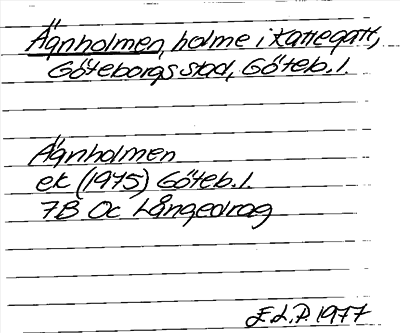 Ägnholmen, holme i Kattegatt,
Göteborgs stad, Göteb. l.
Ägnholmen
ek (1975) Göteb. l.
7B Oc Långedrag
E.L.P. 1977